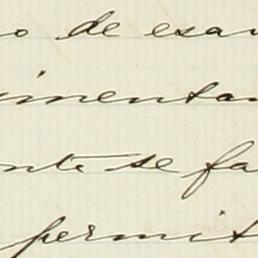 o de exa
imenta
nte se fa
permit